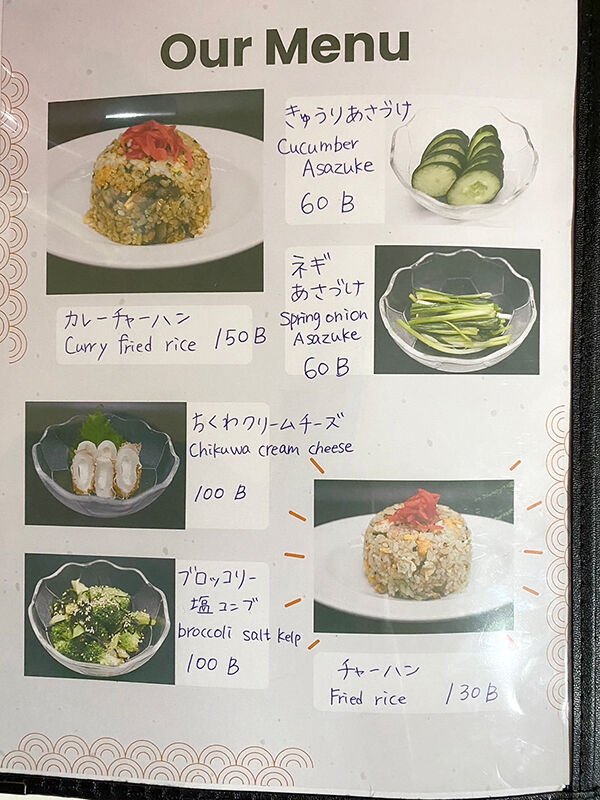 Our Menu
きゅうりあさづけ
Cucumber
Asazuke
60 B
カレーチャーハン
Curry fried rice 150 B
ネギ
あさづけ
Spring onion
Asazuke
60 B
ちくわクリームチーズ
Chikuwa cream cheese
100 B
ブロッコリー
塩コンブ
broccoli salt kelp
100 B
チャーハン
Fried rice 130 B